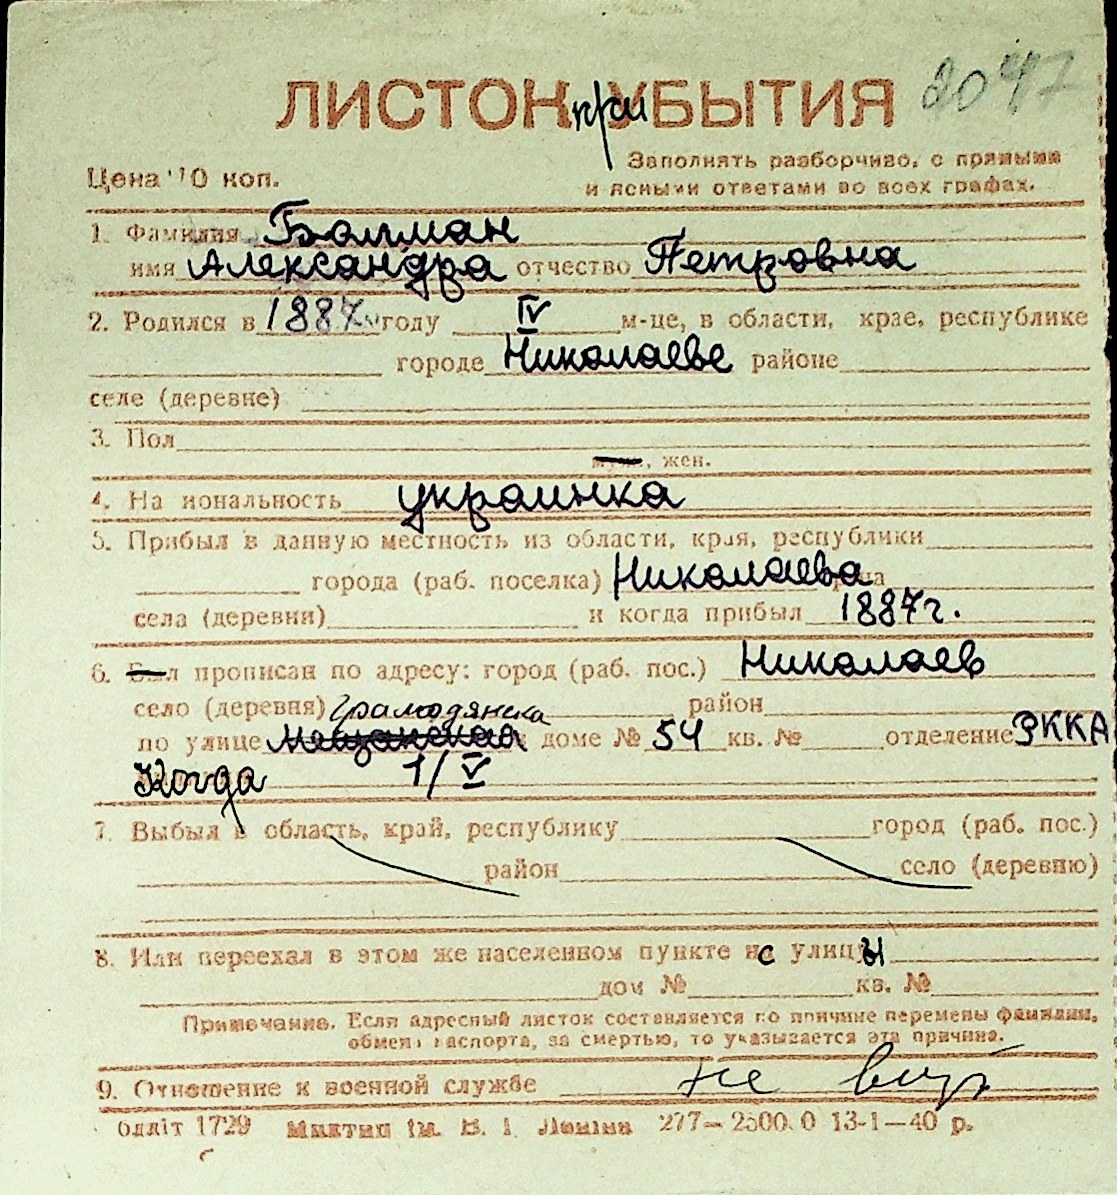 2047
ЛИСТОК при УБЫТИЯ
Заполнять разборчиво, с прямыми
Цена 10 коп.
и ясными ответами во всех графах.
1. Фамилия Болгман
имя Александра отчество Петровна
2. Родился в 1887 году IV м-це, в области, крае, республике
городе Николаеве районе
селе (деревне)
3. Пол
муж., жен.
4. Национальность украинка
5. Прибыл в данную местность из области, края, республики
города (раб. поселка) Николаева
села (деревни) и когда прибыл 1887г.
6. Был прописан по адресу: город (раб. пос.) Николаев
село (деревня) Грамодянска район
по улице Мещанская доме № 54 кв. № отделение РККА
Когда 1/V
7. Выбыл в область, край, республику город (раб. пос.)
район село (деревню)
8. Или переехал в этом же населенном пункте с улицы
дом № кв. №
Примечание. Если адресный листок составляется по причине перемены фамилии,
обмена паспорта, за смертью, то указывается эта причина.
9. Отношение к военной службе не
Облліт 1729 Миктип ім. В. І. Леніна 277—2500.0 13-1—40 р.